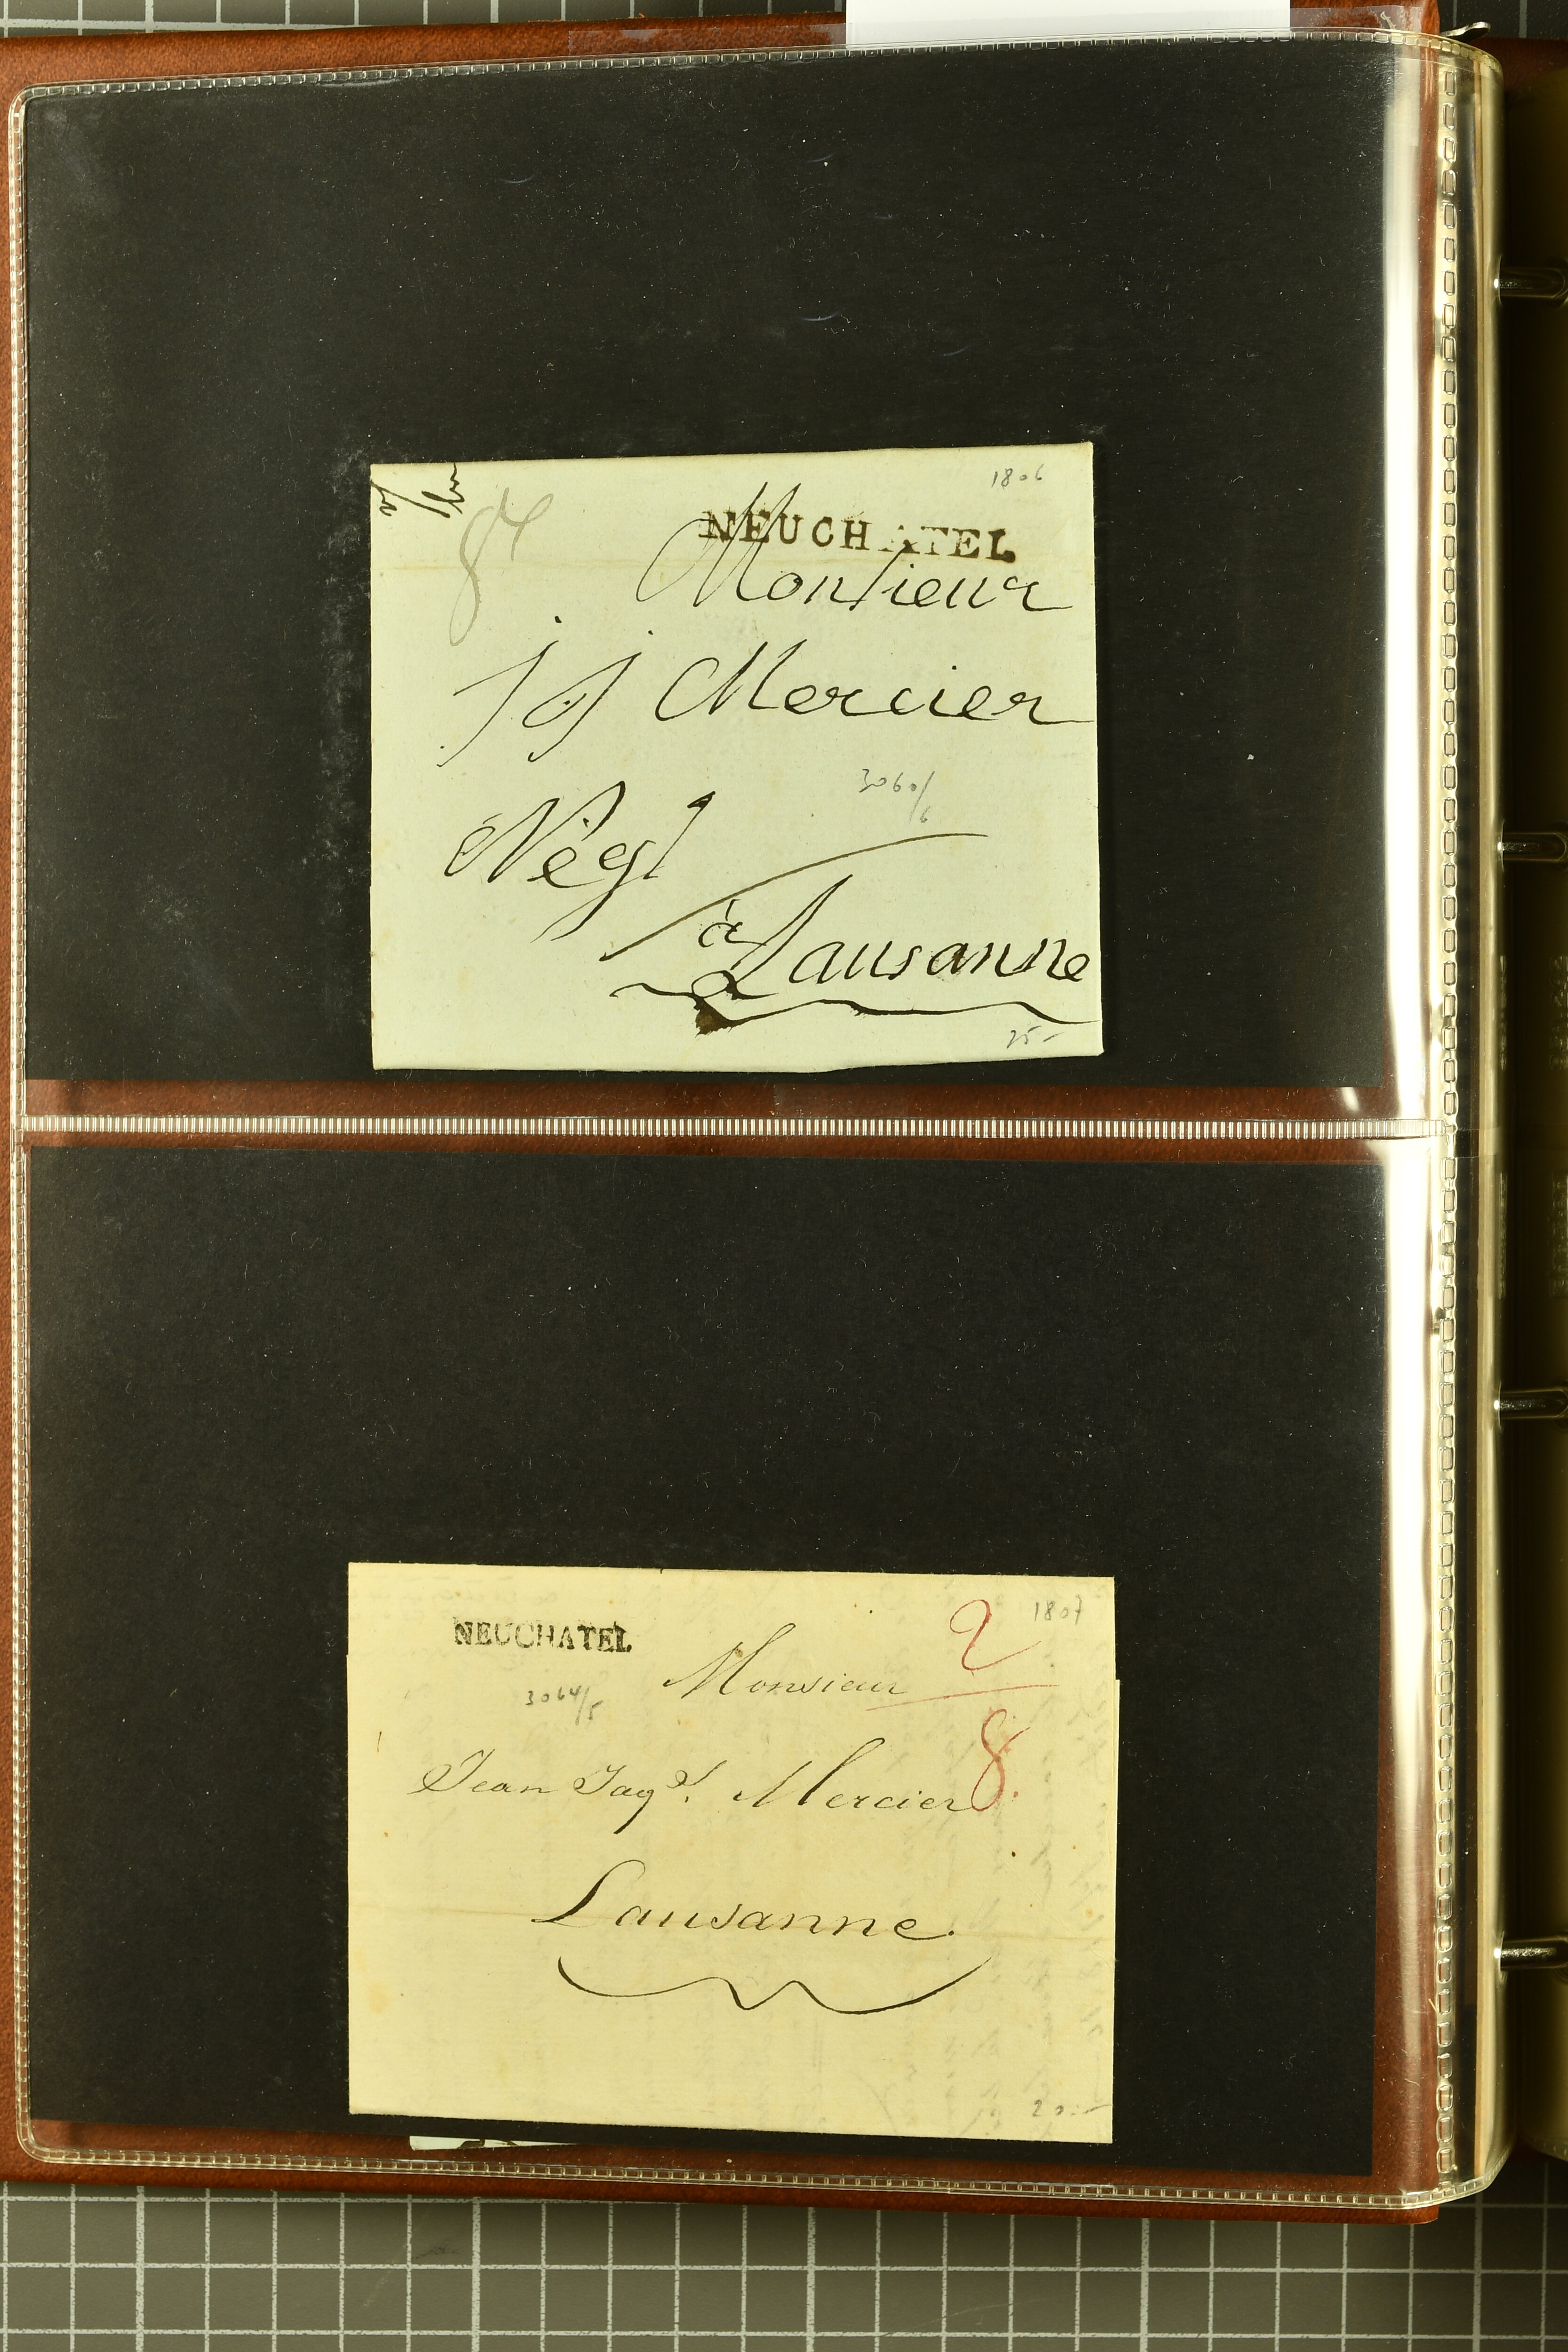 1806
NEUCHATEL
Monsieur
jj Mercier
Negt
3060/6
à Lausanne
25-
1807
NEUCHATEL
2
Monsieur
3064/5
8.
Jean Jaqs. Mercier
Lausanne.
20.-